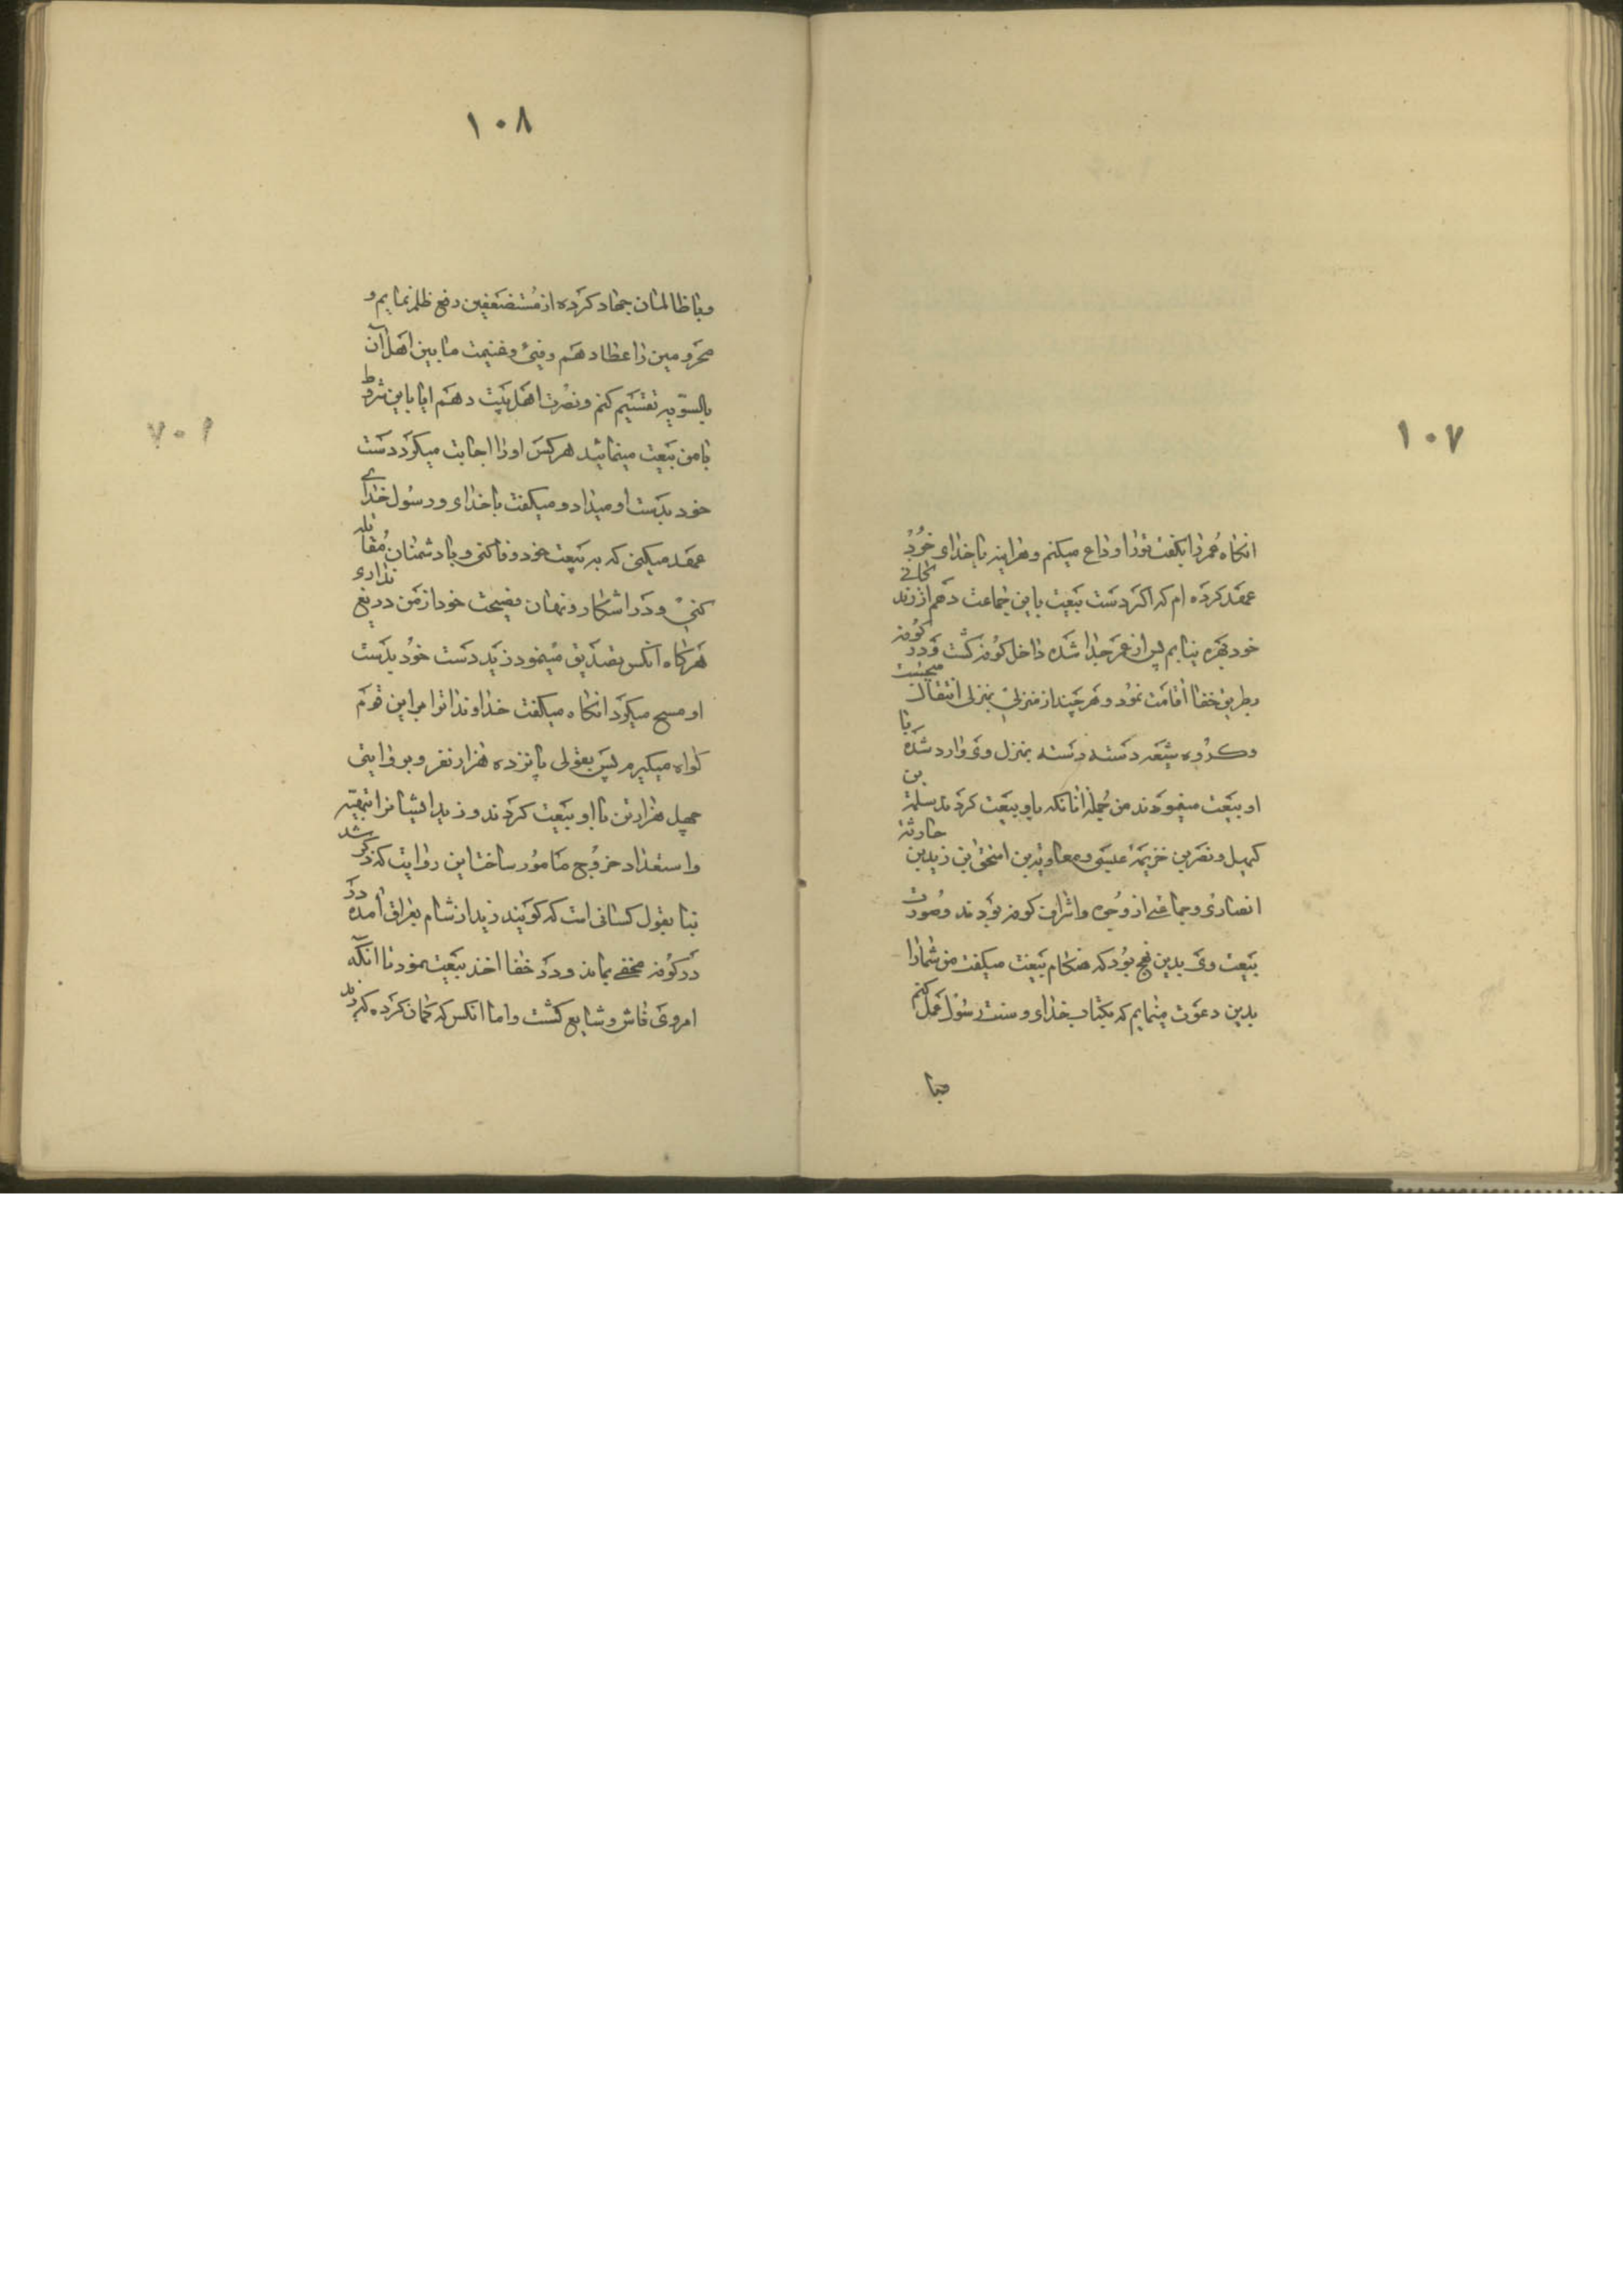 ۱۰۷
انکاه عمر را بکفت تو را وداع میکنم و هراینه با خدای خود
عهد کرده ام که اکر دست بیعت باین جماعت دهم از زندکانی
خود بهره نیابم پس از عمر جدا شده داخل کوفه کشت و در کوفه
بطریق خفا اقامت نمود و هرچند از منزلی بمنزلی انتقال میجست
وکروه شیعه دسته دسته بمنزل وی وارد شده با
او بیعت مینمودند من جمله انانکه باو بیعت کردند سلمة بن
کهیل و نصر بن خزیمة عبسی و معاویة بن اسحق ابن زید بن حارثة
انصاری و جماعتی از وجوه و اشراف کوفه بودند و صورت
بیعت وی بدین نهج بود که هنکام بیعت میکفت من شما را
بدین دعوت مینمایم که بکتاب خدای و سنت رسول عمل کنم
وبا
۱۰۸
وبا ظالمان جهاد کرده از مستضعفین دفع ظلم نمایم و
محرومین را عطا دهم و فیئ و غنیمت ما بین اهل آن
بالسویه تقسیم کنم و نصرت اهل بیت دهم ایا باین شروط
با من بیعت مینمائید هر کس او را اجابت میکرد دست
خود بدست او میداد و میکفت با خدای و رسول خدای
عهد میکنی که به بیعت خود وفا کنی و با دشمنان مقاتله
کنی و در اشکار و نهان نصیحت خود از من دریغ نداری
هرکاه آنکس تصدیق مینمود زید دست خود بدست
او مسح میکرد انکاه میکفت خداوندا ترا بر این قوم
کواه میکیرم پس بقولی پانزده هزار نفر و بروایتی
چهل هزار تن با او بیعت کردند و زید ایشانرا بتهیه
و استعداد خروج مامور ساخت این روایت که ذکر شد
بنا بقول کسانی است که کویند زید از شام بعراق آمده در
در کوفه مخفی بماند و در خفا اخذ بیعت نمود تا آنکه
امر وی فاش و شایع کشت و اما انکس که کمان کرده که زید